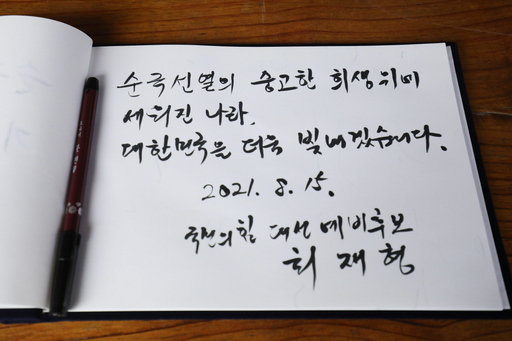 순국선열의 숭고한 희생위에
세워진 나라.
대한민국을 더욱 빛내겠습니다.
2021. 8. 15.
국민의힘 대선 예비후보
최재형